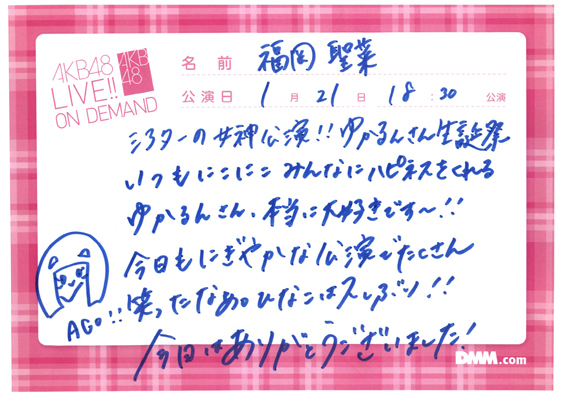 AKB48
LIVE!!
ON DEMAND
AKB
48
名前 福岡 聖菜
公演日 1月21日 18:30 公演
シアターの女神公演!! ゆかるんさん生誕祭
いつもにこにこ みんなにハピネスをくれる
ゆかるんさん、本当に大好きです〜!!
今日もにぎやかな公演でたくさん
笑ったなあ。ひなこは久しぶり!!
AGO!!
今日はありがとうございました!
DMM.com